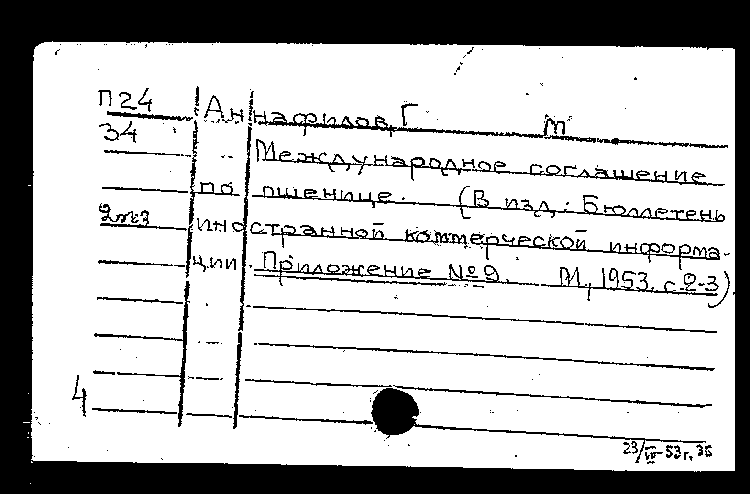 П24 Аннафилов, Г m
34 Международное соглашение
по пшенице. (В изд.: Бюллетень
2экз иностранной коммерческой информа-
ции. Приложение №9. М, 1953. с.2-3).
4
23/IV-53г. 35